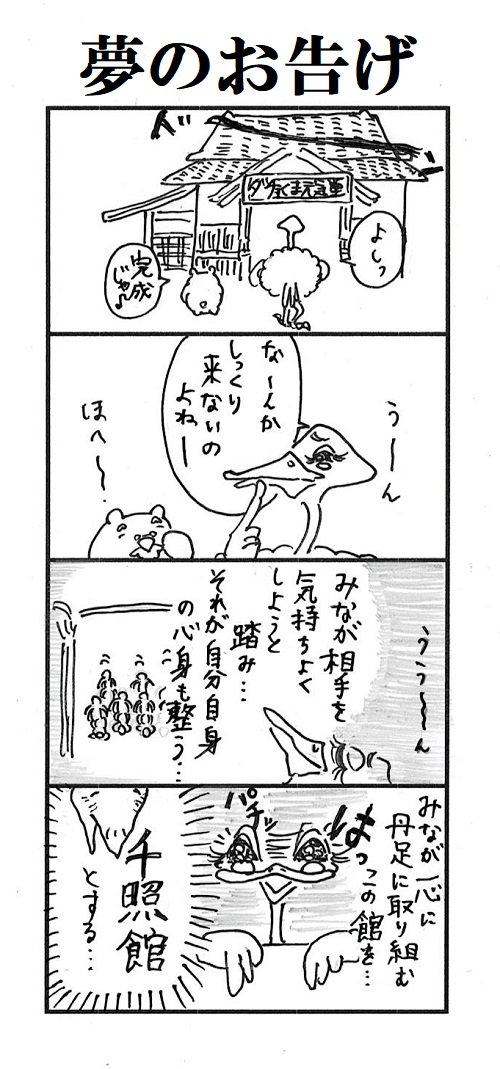 夢のお告げ
よしっ
完成
じゃ♪
うーん
なーんか
しっくり
来ないの
よねー
ほへ〜…
ううーん
みなが相手を
気持ちよく
しようと
踏み…
それが自分自身
の心身も整う…
みなが一心に
丹足に取り組む
この館を…
はっ
パチッ
千照館
とする…